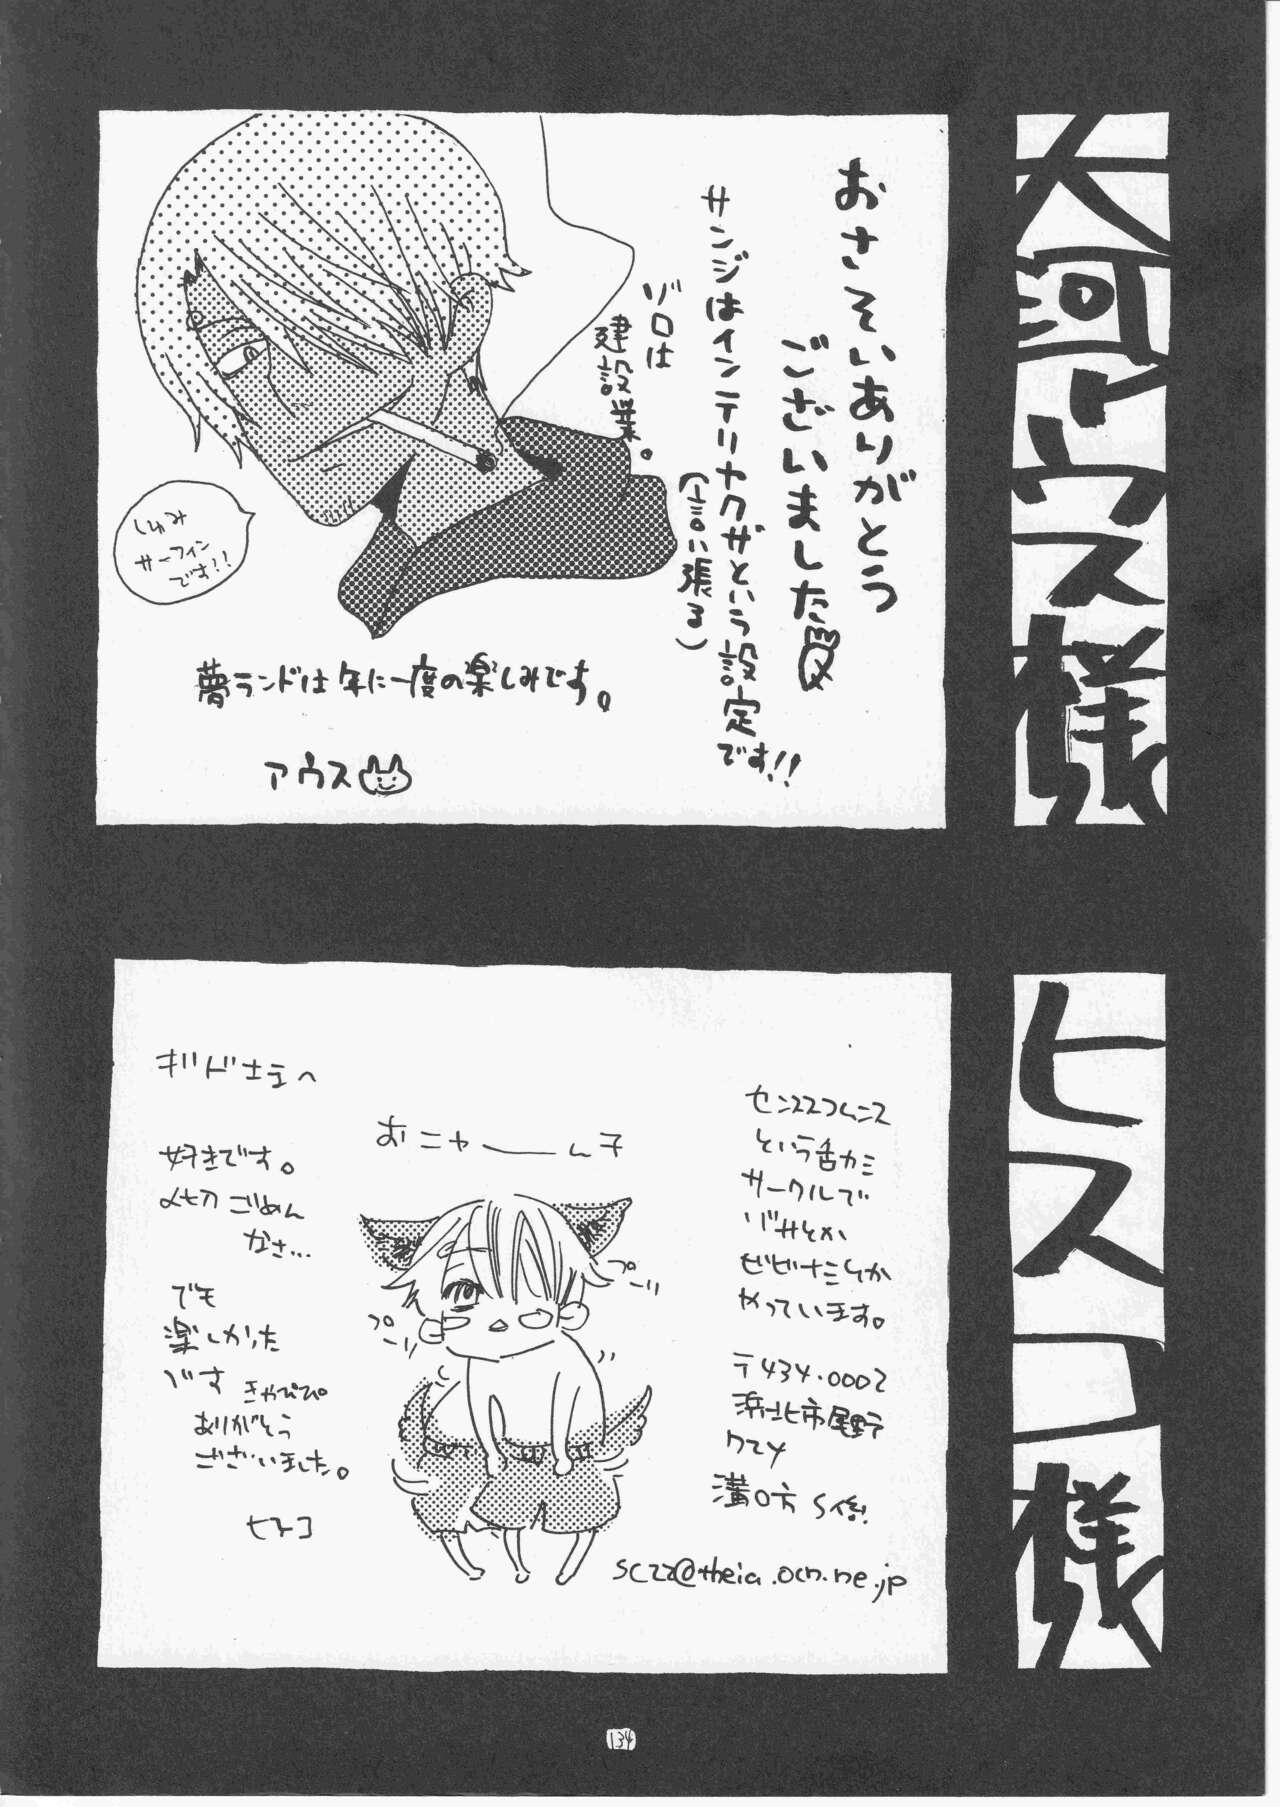 大河アウス様
おさそいありがとう
ございました
サンジはインテリヤクザという設定です!!
(言い張る)
ゾロは
建設業。
しゅみ
サーフィン
です!!
夢ランドは年に一度の楽しみです。
アウス
ヒスコ様
という舌カミ
サークルで
やっています。
〒434.0002
浜北市尾野
溝口方 S係
sc22@theia.ocn.ne.jp
おニャーーん子
プーリ
プーリ
好きです。
〆切ごめん
なさ…
でも
楽しかった
です きゃぴぴ
ありがとう
ございました。
ヒスコ
134